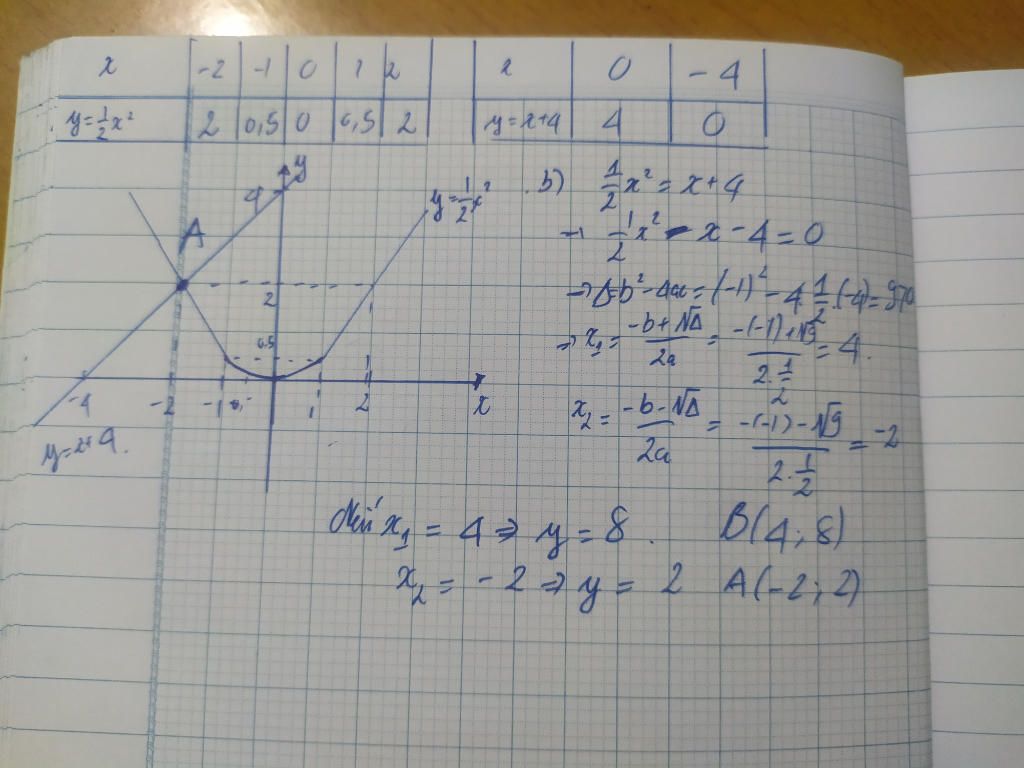 x -2 -1 0 1 2
y=1/2x² 2 0,5 0 0,5 2
x 0 -4
y=x+4 4 0
y
4
A
y=1/2x²
2
0,5
-4 -2 -1 1 2 x
y=x+4.
b) 1/2x² = x+4
→ 1/2x² - x - 4 = 0
→ Δ=b²-4ac=(-1)²-4.1/2.(-4)=9>0
⇒ x₁ = (-b+√Δ)/2a = (-(-1)+√9)/(2.1/2) = 4.
x₂ = (-b-√Δ)/2a = (-(-1)-√9)/(2.1/2) = -2
x₁ = 4 ⇒ y = 8. B(4;8)
x₂ = -2 ⇒ y = 2 A(-2;2)